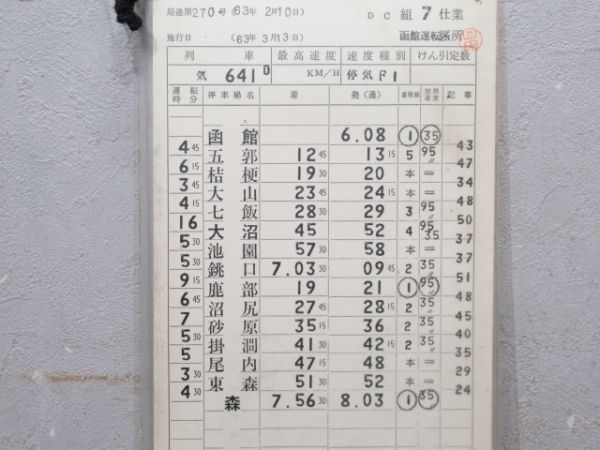 局進第270号 (63年 2月10日) DC組7仕業
施行日 (63年 3月13日) 函館運転所
列車 最高速度 速度種別 けん引定数
気 641D KM/H 停気F1
運転時分 停車場名 着 発(通) 着発線 制限速度 記事
函館 6.08 ① 35
4 45 43
五郭 12 45 13 15 5 95
6 15 47
桔梗 19 30 20 本 =
3 45 34
大山 23 45 24 15 本 =
4 15 48
七飯 28 30 29 3 95
16 50
大沼 45 52 4 95 35
5 30 37
池園 57 30 58 本 =
5 30 37
銚口 7.03 30 09 45 2 35
9 15 51
鹿部 19 21 ① 95
6 45 48
沼尻 27 45 28 15 2 35
7 45
砂原 35 15 36 2 35
5 30 40
掛澗 41 30 42 15 2 35
5 35
尾内 47 15 48 本 =
3 30 29
東森 51 30 52 本 =
4 30 24
森 7.56 30 8.03 ① 35